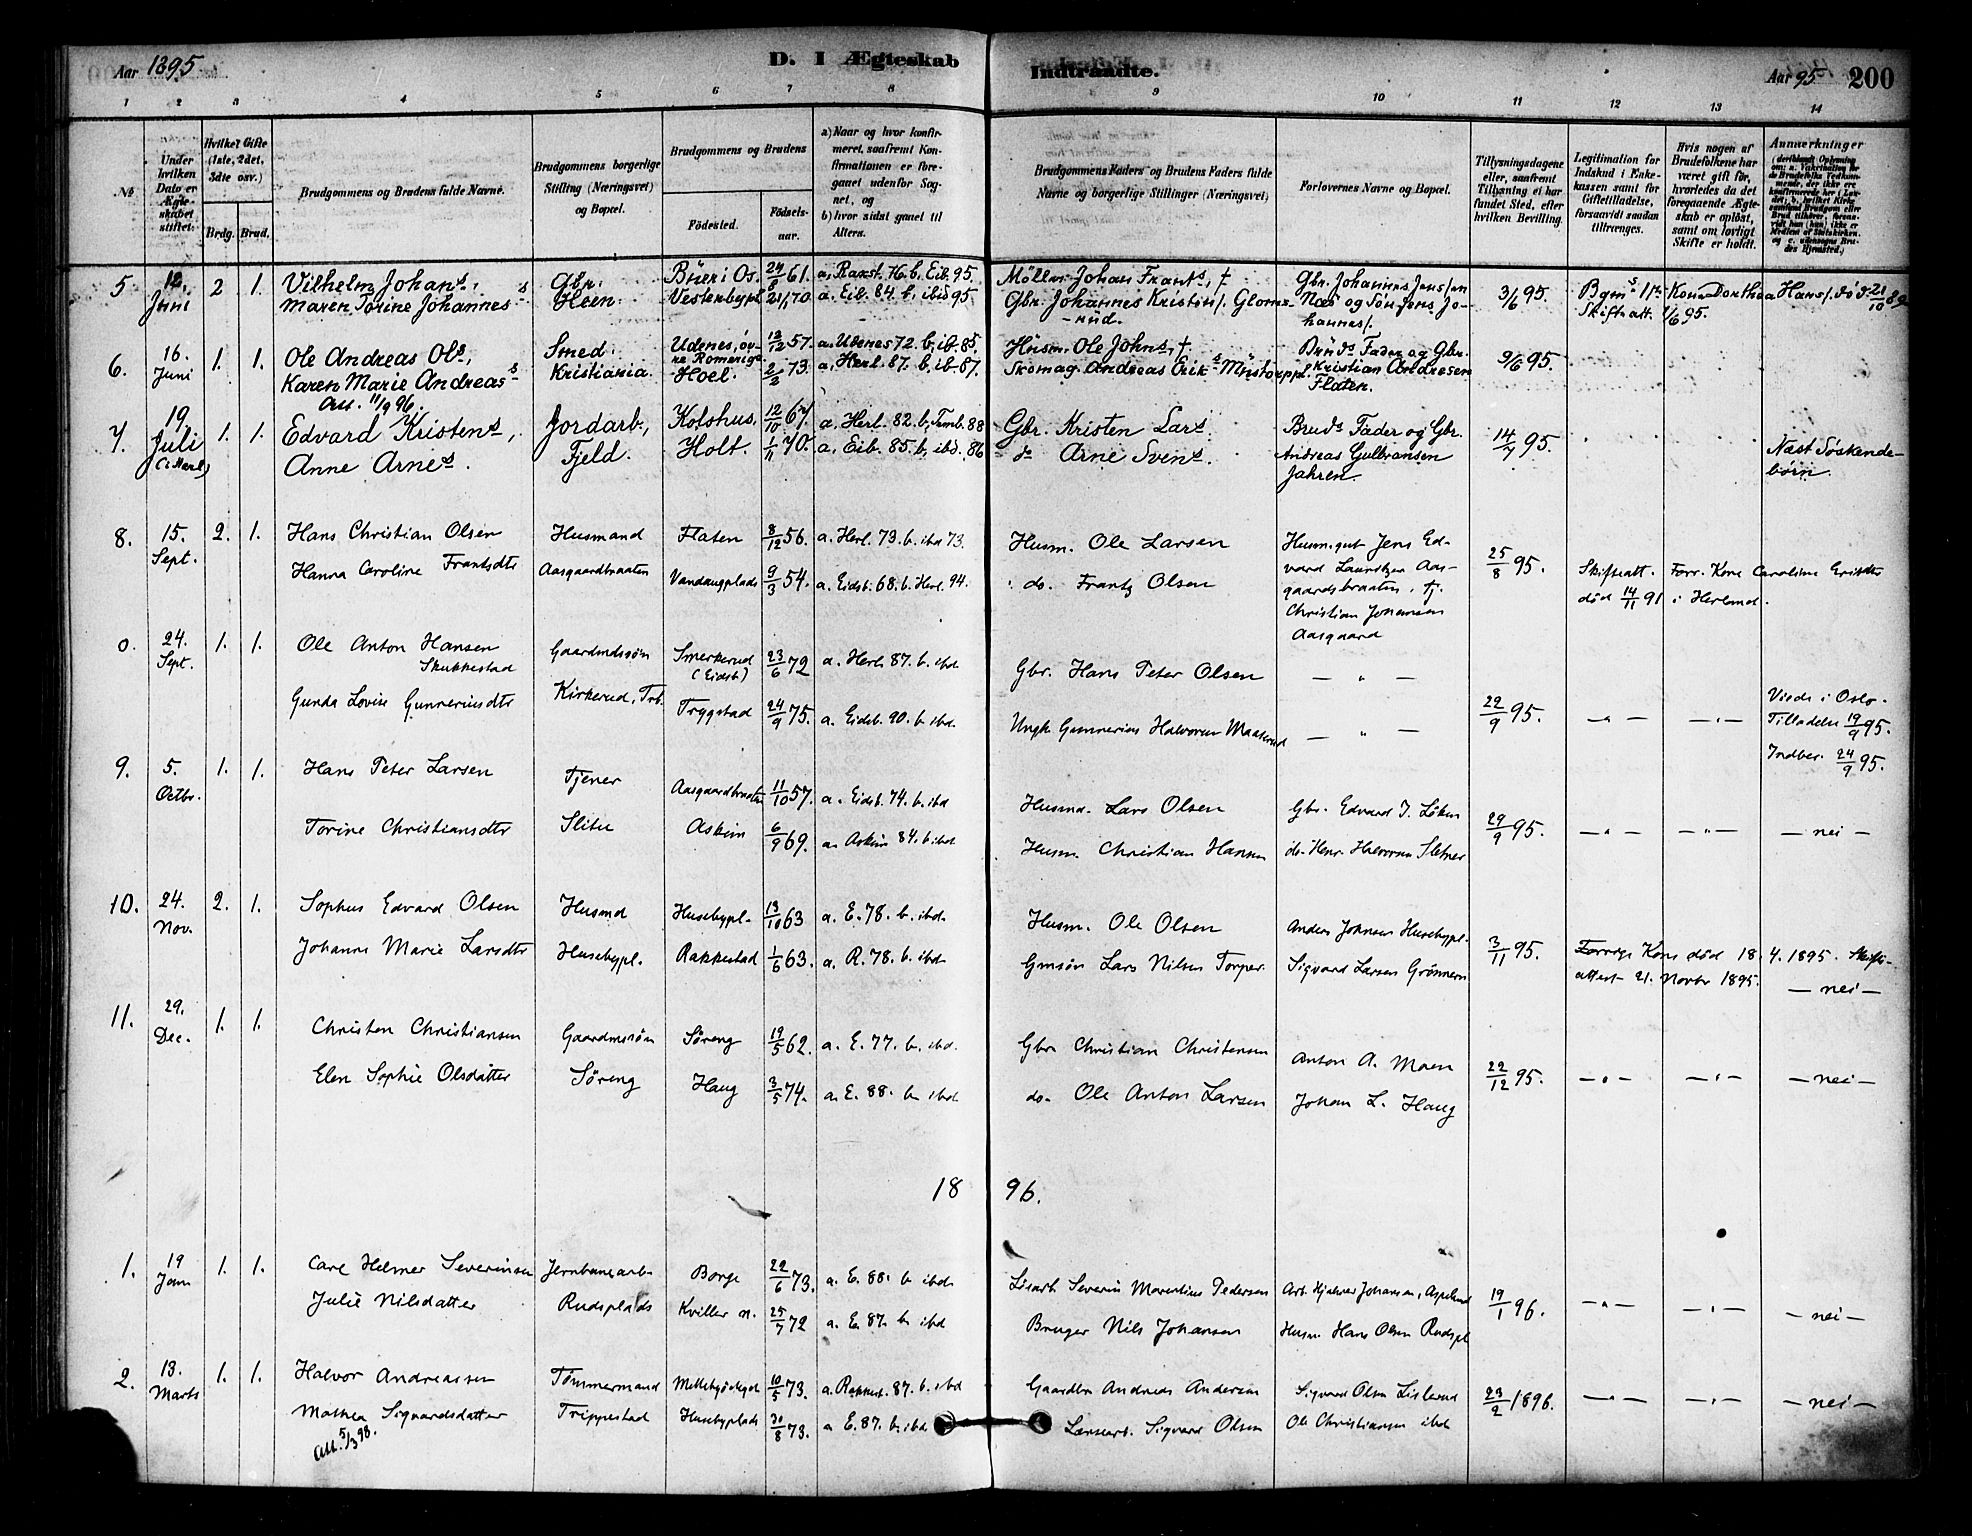 Aar 1895. D. I Ægteskab Indtraadte. Aar 95 200
1 2 3 4 5 6 7 8 9 10 11 12 13 14
No.
Under hvilken Dato er Ægteskabet stiftet.
Hvilket Gifte (1ste, 2det, 3die osv.)
Brdg. Brud.
Brudgommens og Brudens fulde Navne.
Brudgommens borgerlige Stilling (Næringsvei) og Bopæl.
Brudgommens og Brudens
Fødested. Fødselsaar.
a) Naar og hvor konfirmeret, saafremt Konfirmationen er foregaaet udenfor Sognet, og
b) hvor sidst gaaet til Alters.
Brudgommens Faders og Brudens Faders fulde Navne og borgerlige Stillinger (Næringsvei)
Forlovernes Navne og Bopæl.
Tillysningsdagene eller, saafremt Tillysning ei har fundet Sted, efter hvilken Bevilling.
Legitimation for Indskud i Enkekassen samt for Giftetilladelse, forsaavidt saadan tiltrænges.
Hvis nogen af Brudefolkene har været gift før, hvorledes da det foregaaende Ægteskab er opløst, samt om lovligt Skifte er holdt.
Anmerkninger
5 12. Juni 2 1. Vilhelm Johans. Gbr. Büer i Os. 24/8 61. a. Raxst. H. b. Eib. 95. Møller Johan Frants, † Gbr. Johannes Jensen 3/6 95. Bgm Kona Dorthea Hans. død 21/10 89
Maren Torine Johannes Heen. Vesterbypl. 21/11 70 a. Eib. 84. b. ibid 95. Gbr. Johannes Kristin/. Gloms- Næs og Søn Jens Jo- Skifteatt. 1/6 95.
rud. hannes/.
6. 16. Juni 1. 1. Ole Andreas Ols, Smed. Udenes, øv- 12/12 57. a. Udenes 72. b. ib. 85. Husm. Ole Johns, † Bruds Fader og Gbr. 9/6 95.
Karen Marie Andreass Kristiania. re Romerige Hoel. 2/2 73. a. Herl. 87. b. ib. 87. Skomag. Andreas Eriks Kristian Andresen
Att. 11/9 96. Flaten.
7. 19. Juli (i Herl.) 1. 1. Edvard Kristens, Jordarb., Kolshus. 12/10 67. a. Herl. 82. b. Tomb. 88 Gbr. Kristen Lars. Bruds Fader og Gbr. 14/7 95.
Anne Arnes. Fjeld. Holt. 1/11 70. a. Eib. 85. b. ibd. 86 do Arne Svens. Andreas Gulbransen Næst Søskende-
Jahren. børn.
8. 15. Sept. 2. 1. Hans Christian Olsen Husmand Flaten 8/12 56. a. Herl. 73. b. ibd 73. Husm. Ole Larsen Husm.gut Jens Ed- 25/8 95.
Hanna Caroline Frantsdtr Aasgaardbraaten Vandaugplads 9/3 54. a. Eidsb. 68. b. Herl. 94. do. Frantz Olsen vard Lauritzen Aas- Skifteatt. Forr. Kone Caroline Eriksdtr
gaardsbraaten, tj. død 14/11 91 i Herland.
Christian Johansen
Aasgaard
0. 24. Sept. 1. 1. Ole Anton Hansen Gaardmdssøn Smerkerud 23/6 72 a. Herl. 87. b. ibd Gbr. Hans Peter Olsen — " —
Skukkestad (Eidsb)
Gunda Lovise Gunneriusdtr Kirkerud, Trb. Trygstad 24/9 75. a. Eidsb. 90. b. ibd. Ungk. Gunnerius Halvorsen Maaserud — " — 22/9 95. — " — — " — Viede i Oslo.
Tilladelse 19/9 95.
Indber. 24/9 95.
9. 5. Octbr. 1. 1. Hans Peter Larsen Tjener Aasgaardbraaten 11/10 57. a. Eidsb. 74. b. ibd Husmd. Lars Olsen Gbr. Edvard J. Løken 29/9 95. — " — — " — — nei —
Torine Christiansdtr Slitu Askim 6/9 69. a. Askim 84. b. ibd Husm. Christian Hansen do. Henr. Halvorsen Sletner
10. 24. Nov. 2. 1. Sophus Edvard Olsen Husmd Husebypl. 13/10 63 a. E. 78. b. ibd. Husm. Ole Olsen Anders Johnsen Husebypl. 3/11 95. Forrige Kone død 18. 4. 1895. Skifte-
Johanne Marie Larsdtr Husebypl. Rakkestad 1/6 63. a. R. 78. b. ibd. Gmsøn Lars Nilsen Torper. Sigvard Larsen Grönnern attest 21. Novbr 1895. — nei —
11. 29. Dec. 1. 1. Christen Christiansen Gaardmssøn Søreng 19/5 62. a. E. 77. b. ibd. Gbr. Christian Christensen Anton A. Moen 22/12 95. — " — — " — — nei —
Elen Sophie Olsdatter Søreng Haug 3/5 74. a. E. 88. b. ibd. do. Ole Anton Larsen Johan L. Haug
1896.
1. 19 Jan 1. 1. Carl Helmer Severinsen Jernbanearb. Borge 22/6 73. a. E. 88. b. ibd. Severin Martinius Pedersen Arb. Hjalmer Johansen, Aspelund 19/1 96. — " — — " — — nei —
Julie Nilsdatter Rudsplads Kviller n. 25/7 72 a. E. 87. b. ibd Bruger Nils Johansen Husm. Hans Olsen Rudspl
2. 13. Marts 1. 1. Halvor Andreassen Tømmermand 10/5 73. a. Rakkest. 87. b. ibd Gaardbr Andreas Andersen Sigvard Olsen Lislerud 23/2 1896. — " — — " — — nei —
Mathea Sigvardsdatter Trippestad Husebyplads 30/8 73. a. E. 87. b. ibd Sigvard Olsen Ole Christiansen ibd
Att. 5/3 98.